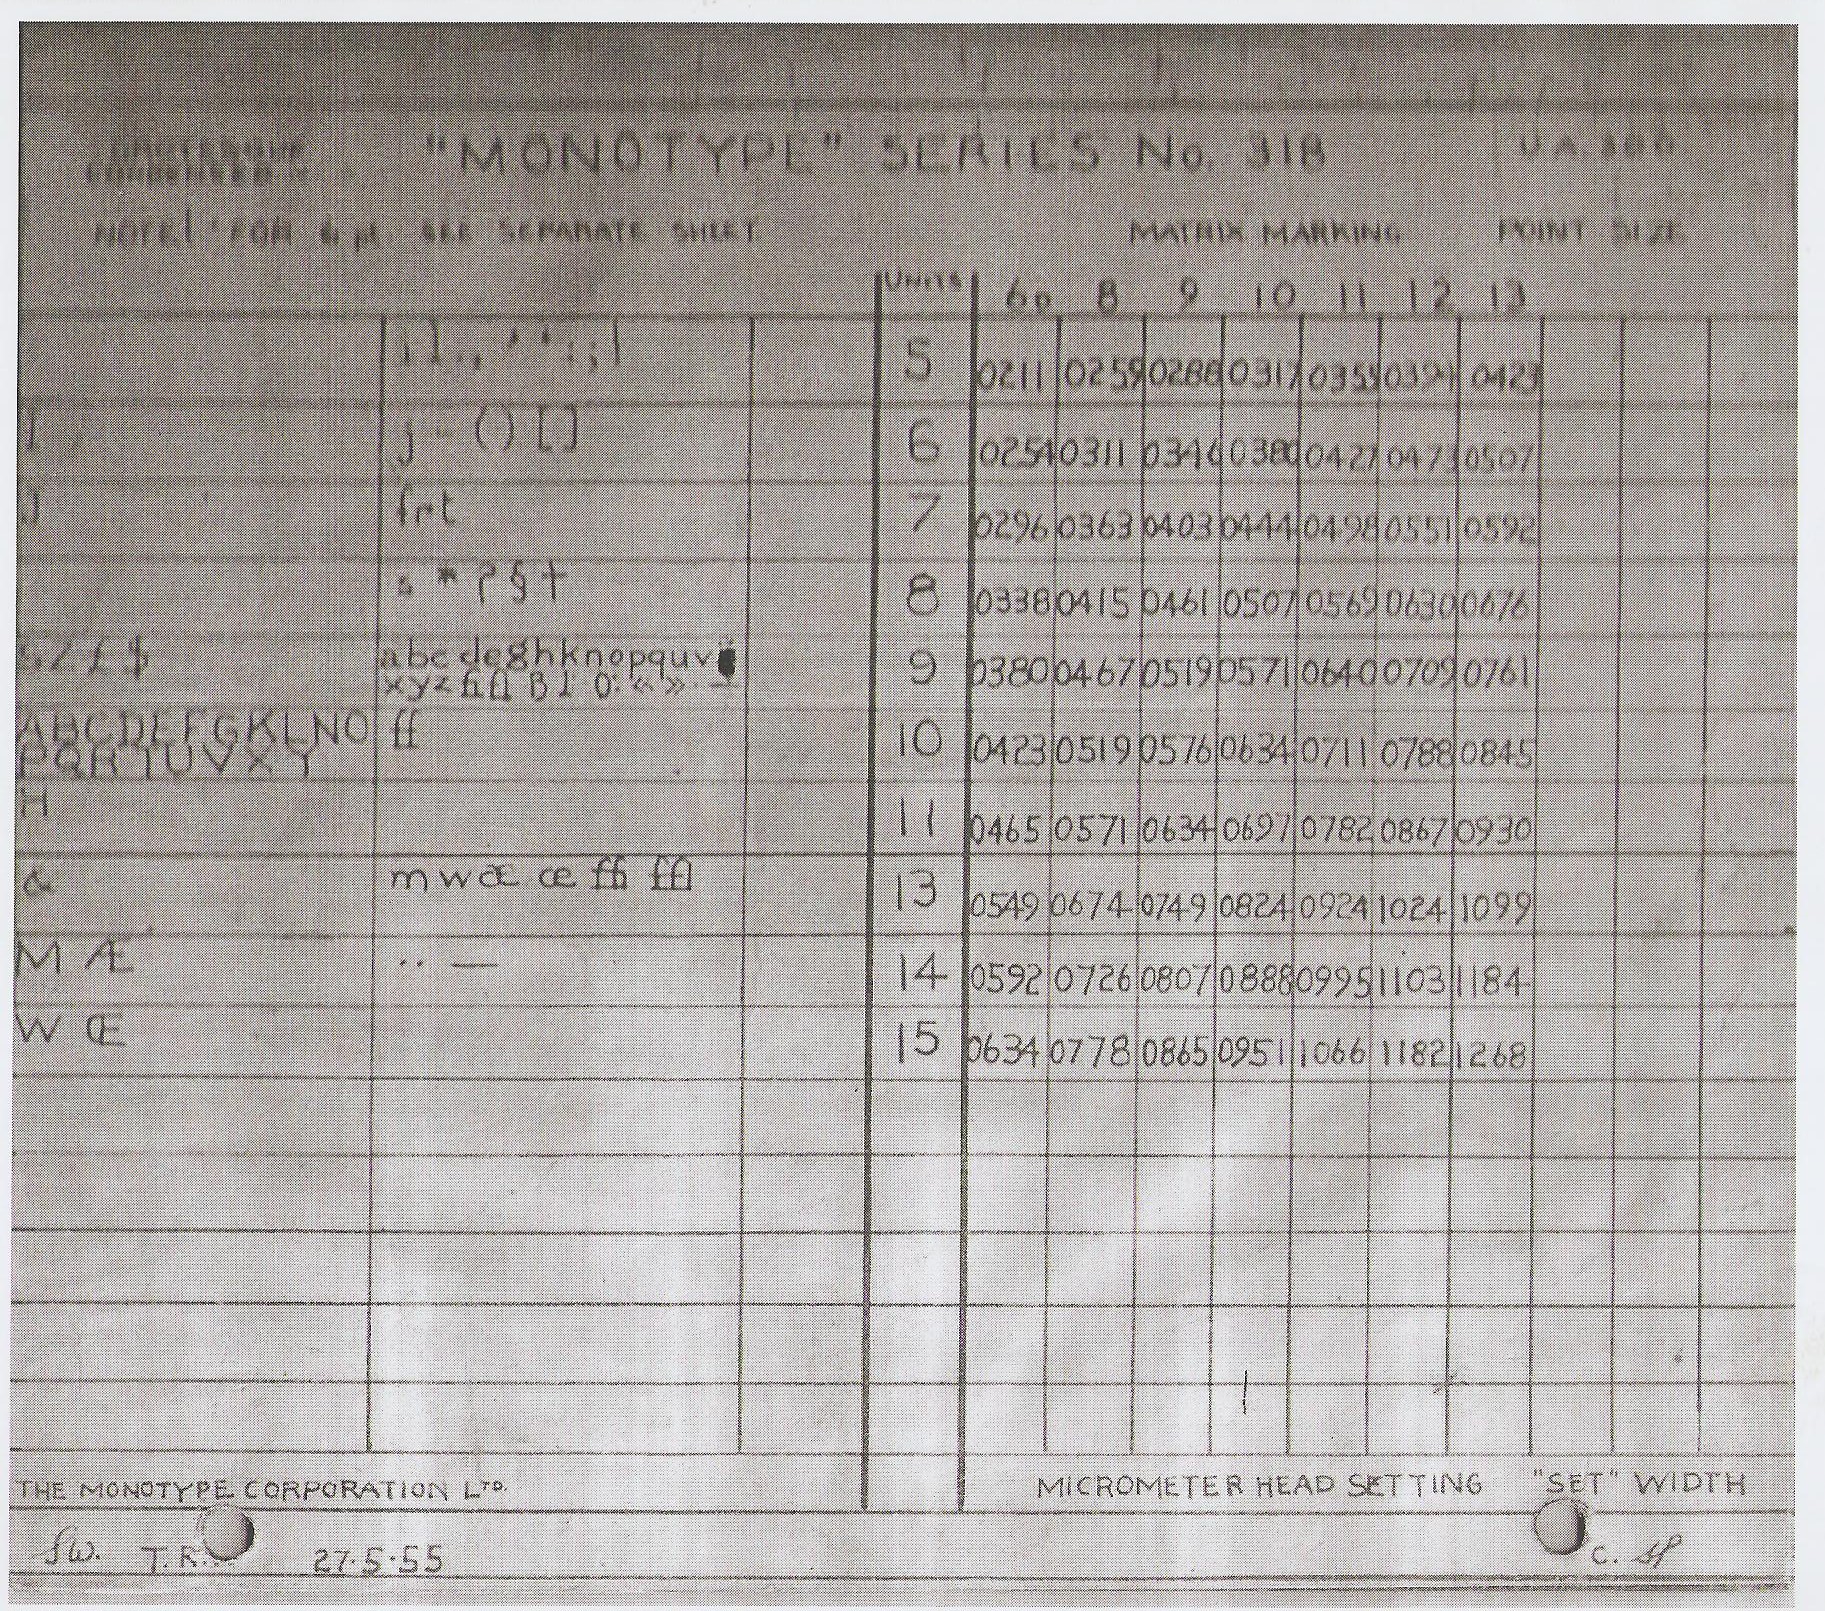 GROTESQUE "MONOTYPE" SERIES No. 318 U.A.
CONDENSED
NOTE! FOR 6 pt. SEE SEPARATE SHEET MATRIX MARKING POINT SIZE
UNITS 6D 8 9 10 11 12 13
i l . , ' ' : ; | 5 0211 0259 0288 0317 0355 0394 0423
I j - ( ) [ ] 6 0254 0311 0346 0380 0427 0473 0507
J f r t 7 0296 0363 0403 0444 0498 0551 0592
s * ? § † 8 0338 0415 0461 0507 0569 0630 0676
S Z £ $ a b c d e g h k n o p q u v 9 0380 0467 0519 0571 0640 0709 0761
x y z fi fl ß 1 0 « » –
A B C D E F G K L N O ff 10 0423 0519 0576 0634 0711 0788 0845
P Q R T U V X Y
H 11 0465 0571 0634 0697 0782 0867 0930
& m w æ œ ffi ffl 13 0549 0674 0749 0824 0924 1024 1099
M Æ .. — 14 0592 0726 0807 0888 0995 1103 1184
W Œ 15 0634 0778 0865 0951 1066 1182 1268
THE MONOTYPE CORPORATION LTD. MICROMETER HEAD SETTING "SET" WIDTH
T.R. 27.5.55 C.